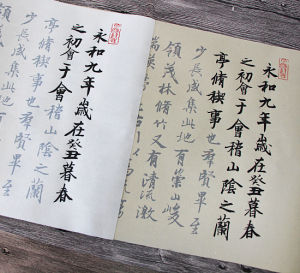 永和九年歲在癸丑暮春
之初會于會稽山陰之蘭
亭脩禊事也羣賢畢至
少長咸集此地有崇山峻
領茂林脩竹又有清流激
湍暎帶
永和九年歲在癸丑暮春
之初會于會稽山陰之蘭
亭脩禊事也羣賢畢至
少長咸集此地